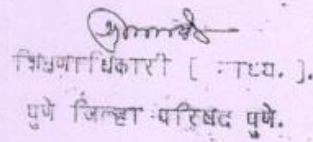 शिक्षणाधिकारी [ माध्य. ].
पुणे जिल्हा परिषद पुणे.